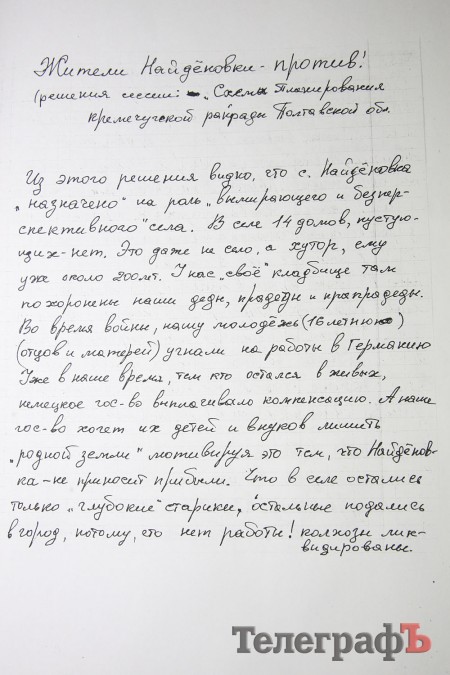 Жители Найдёновки - против!
(решения сессии: „Схемы Планирования
кремечугской райради Полтавской обл.
Из этого решения видно, что с. Найдёновка
„назначено" на роль „вымирающего и беспер-
спективного" села. В селе 14 домов, пустую-
щих - нет. Это даже не село, а хутор, ему
уже около 200 лет. У нас „своё" кладбище там
похоронены наши деды, прадеды и прапрадеды.
Во время войны, нашу молодёжь (16 летнюю)
(отцов и матерей) угнали на работы в Германию
Уже в наше время, тем кто остался в живых,
немецкое гос-во выплачивало компенсацию. А наше
гос-во хочет их детей и внуков лишить
„родной земли" мотивируя это тем, что Найдёнов-
ка - не приносит прибыли. Что в селе остались
только „глубокие" старики, остальные подались
в город, потому, что нет работы! колхозы лик-
видированы.
ТелеграфЪ